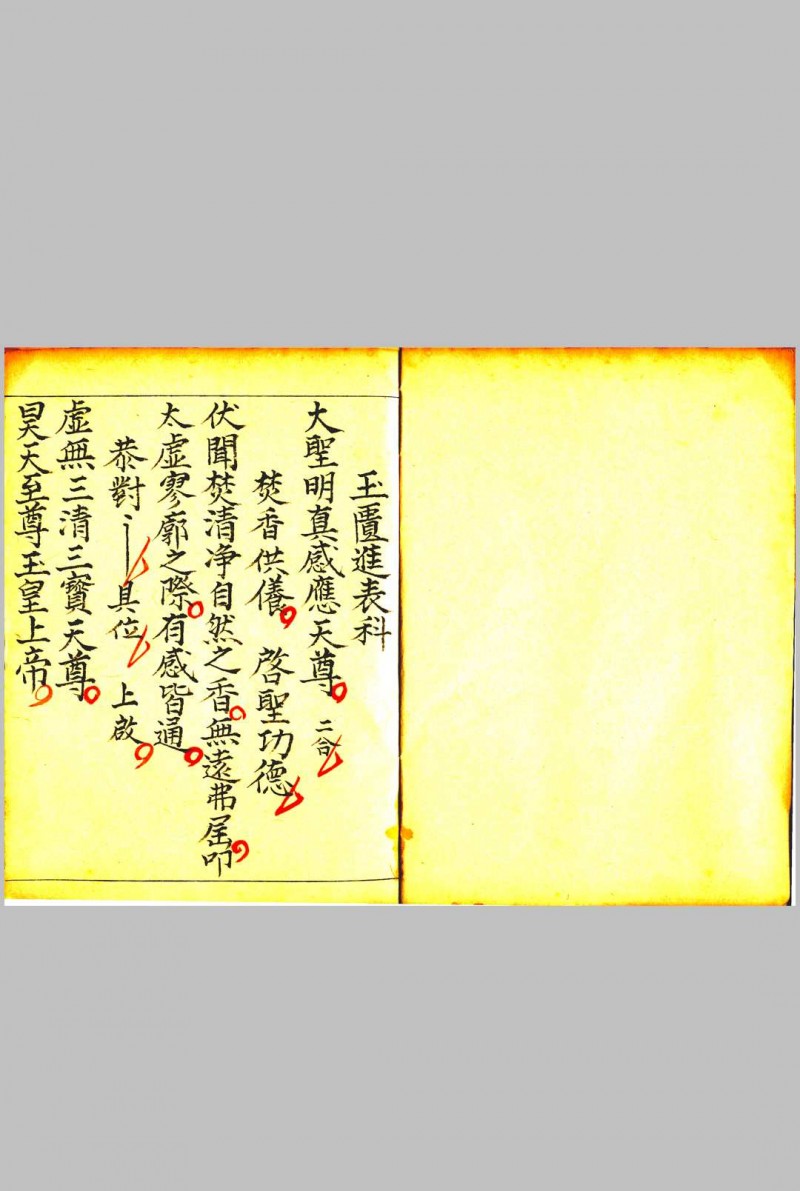 玉匱進表科
大聖明真感應天尊 二合
焚香供養 啓聖功德
伏聞焚清净自然之香無遠弗届叩
太虛寥廓之際有感皆通
恭對 具位 上啟
虛無三清三寳天尊
昊天至尊玉皇上帝